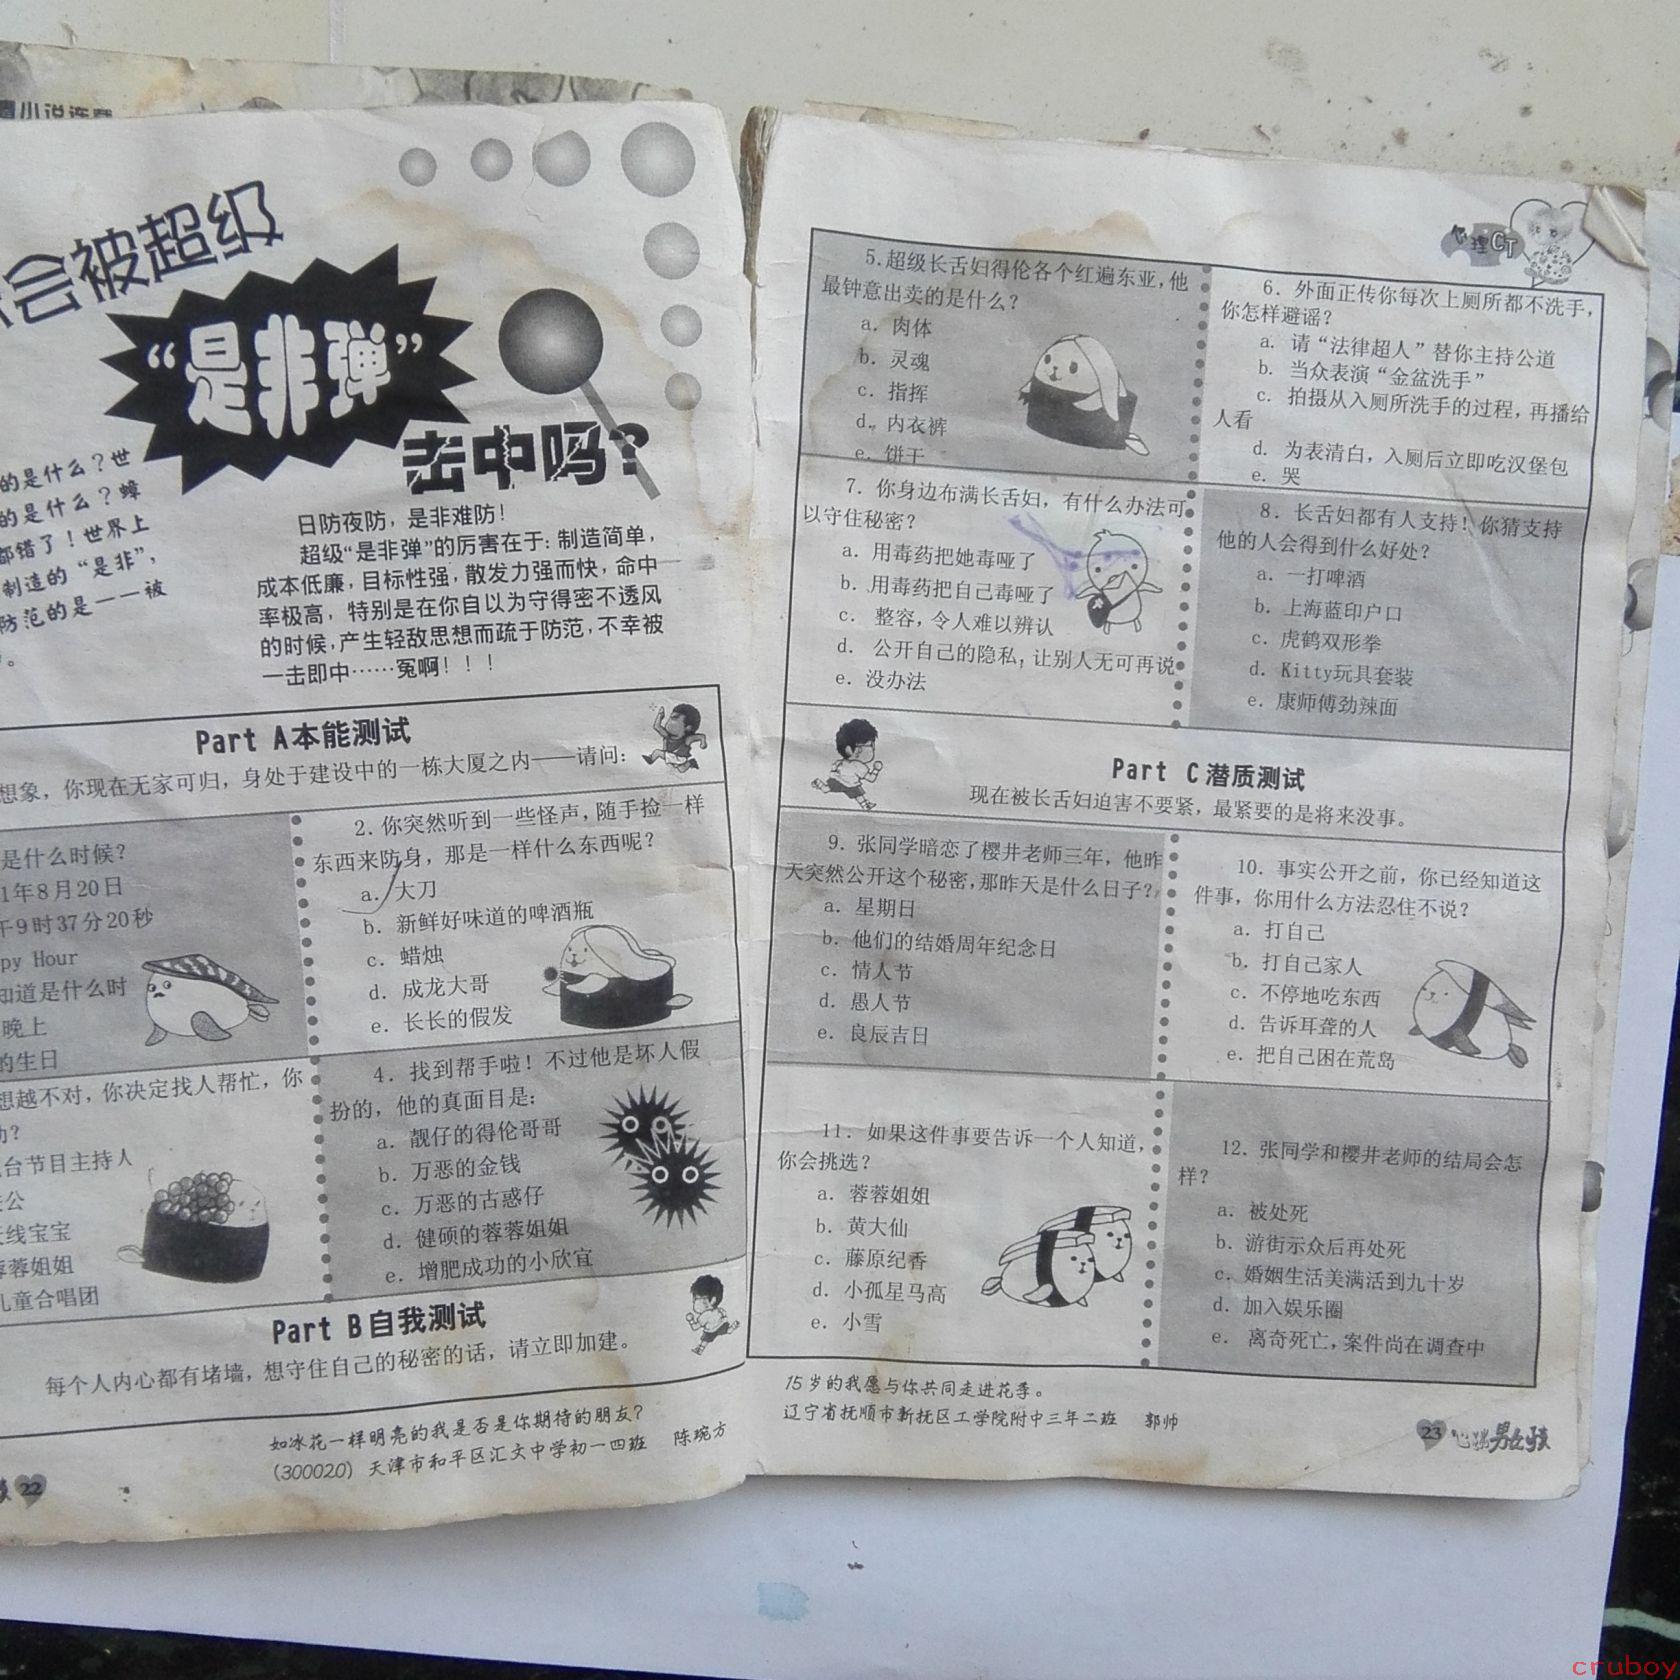 小说连载
会被超级
“是非弹”
击中吗？
的是什么？世
的是什么？蟑
都错了！世界上
制造的“是非”，
防范的是——被
。
日防夜防，是非难防！
超级“是非弹”的厉害在于：制造简单，
成本低廉，目标性强，散发力强而快，命中
率极高，特别是在你自以为守得密不透风
的时候，产生轻敌思想而疏于防范，不幸被
一击即中……冤啊！！！
Part A本能测试
想象，你现在无家可归，身处于建设中的一栋大厦之内——请问：
是什么时候？
1年8月20日
午9时37分20秒
py Hour
知道是什么时
晚上
的生日
2．你突然听到一些怪声，随手捡一样
东西来防身，那是一样什么东西呢？
a．大刀
b．新鲜好味道的啤酒瓶
c．蜡烛
d．成龙大哥
e．长长的假发
想越不对，你决定找人帮忙，你
？
台节目主持人
公
线宝宝
蓉蓉姐姐
儿童合唱团
4．找到帮手啦！不过他是坏人假
扮的，他的真面目是：
a．靓仔的得伦哥哥
b．万恶的金钱
c．万恶的古惑仔
d．健硕的蓉蓉姐姐
e．增肥成功的小欣宜
Part B自我测试
每个人内心都有堵墙，想守住自己的秘密的话，请立即加建。
如冰花一样明亮的我是否是你期待的朋友？
(300020) 天津市和平区汇文中学初一四班 陈琬方
22
心理CT
5．超级长舌妇得伦各个红遍东亚，他
最钟意出卖的是什么？
a．肉体
b．灵魂
c．指挥
d．内衣裤
e．饼干
6．外面正传你每次上厕所都不洗手，
你怎样避谣？
a．请“法律超人”替你主持公道
b．当众表演“金盆洗手”
c．拍摄从入厕所洗手的过程，再播给
人看
d．为表清白，入厕后立即吃汉堡包
e．哭
7．你身边布满长舌妇，有什么办法可
以守住秘密？
a．用毒药把她毒哑了
b．用毒药把自己毒哑了
c．整容，令人难以辨认
d．公开自己的隐私，让别人无可再说
e．没办法
8．长舌妇都有人支持！你猜支持
他的人会得到什么好处？
a．一打啤酒
b．上海蓝印户口
c．虎鹤双形拳
d．Kitty玩具套装
e．康师傅劲辣面
Part C潜质测试
现在被长舌妇迫害不要紧，最紧要的是将来没事。
9．张同学暗恋了樱井老师三年，他昨
天突然公开这个秘密，那昨天是什么日子？
a．星期日
b．他们的结婚周年纪念日
c．情人节
d．愚人节
e．良辰吉日
10．事实公开之前，你已经知道这
件事，你用什么方法忍住不说？
a．打自己
b．打自己家人
c．不停地吃东西
d．告诉耳聋的人
e．把自己困在荒岛
11．如果这件事要告诉一个人知道，
你会挑选？
a．蓉蓉姐姐
b．黄大仙
c．藤原纪香
d．小孤星马高
e．小雪
12．张同学和樱井老师的结局会怎
样？
a．被处死
b．游街示众后再处死
c．婚姻生活美满活到九十岁
d．加入娱乐圈
e．离奇死亡，案件尚在调查中
15岁的我愿与你共同走进花季。
辽宁省抚顺市新抚区工学院附中三年二班 郭帅
23 心跳男女孩
cruboy